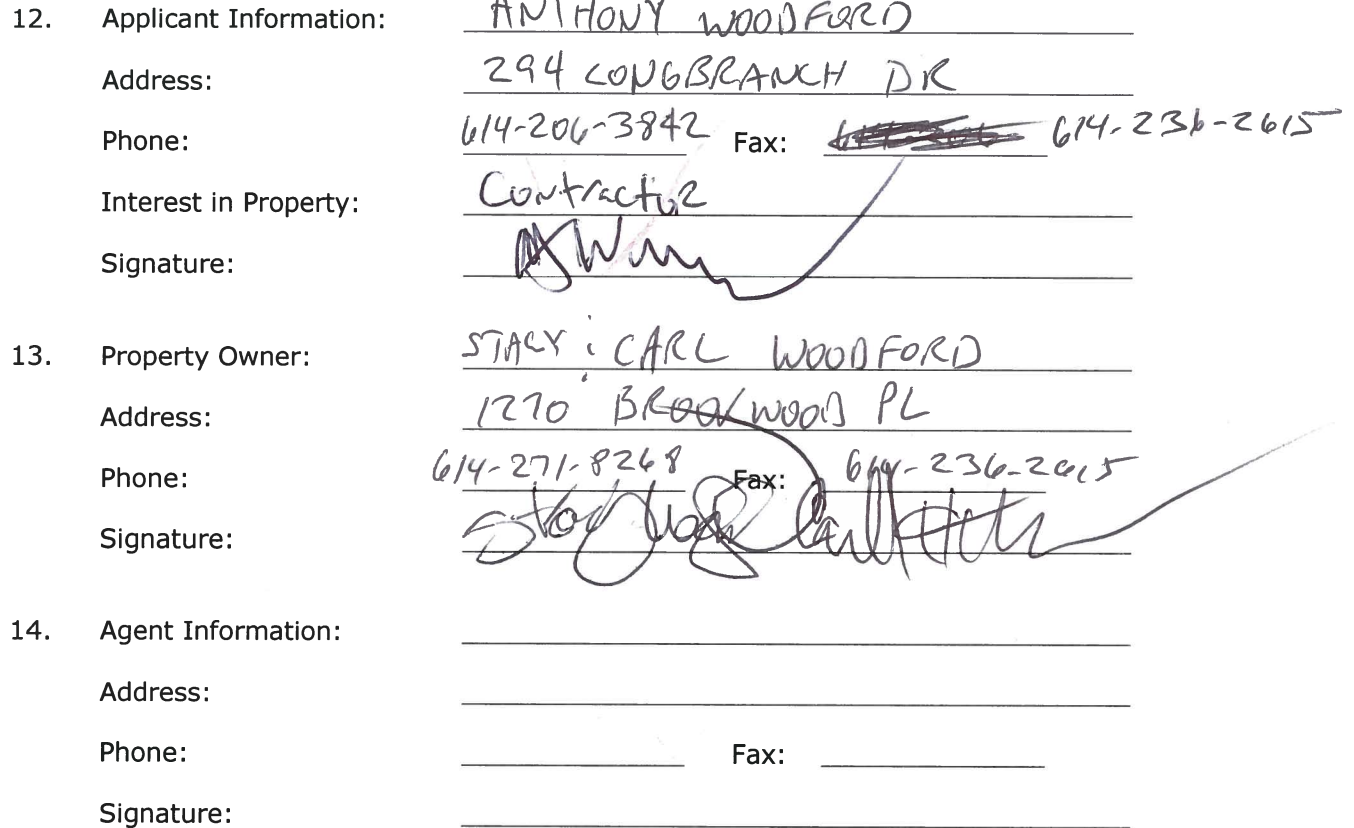 12. Applicant Information: ANTHONY WOODFORD
Address: 294 LONGBRANCH DR
Phone: 614-206-3842 Fax: 614-236-2615
Interest in Property: Contractor
Signature:
13. Property Owner: STACY & CARL WOODFORD
Address: 1270 BROOKWOOD PL
Phone: 614-271-8268 Fax: 614-236-2615
Signature:
14. Agent Information:
Address:
Phone: Fax:
Signature: